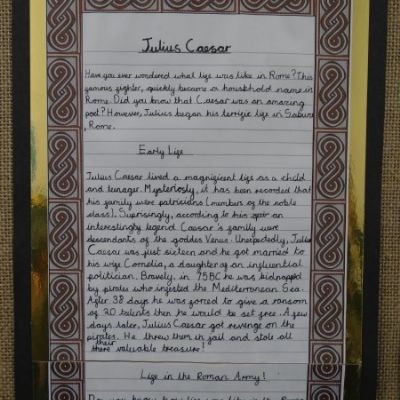 Julius Caesar
Have you ever wondered what life was like in Rome? This
famous fighter, quickly became a household name in
Rome. Did you know that Caesar was an amazing
poet? However, Julius began his terrific life in Subura
, Rome.
Early Life
Julius Caesar lived a magnificent life as a child
and teenager. Mysteriously, it has been recorded that
his family were patricians (members of the noble
class). Suprisingly, according to his an
interestingly legend Caesar's family were
descendants of the goddes Venus. Unexpectedly, Julius
Caesar was just sixteen and he got married to
his wife Cornelia, a daughter of an influential
politician. Bravely, in 75BC he was kidnapped
by pirates who infested the Mediterranean Sea.
After 38 days he was forced to give a ransom
of 20 talents then he would be set free. A few
days later, Julius Caesar got revenge on the
pirates. He threw them in jail and stole all
their valuable treasure!
Life in the Roman Army!